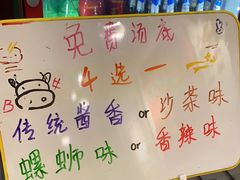 免费汤底
4选一
B 4
传统酱香or沙茶味
螺蛳味or香辣味